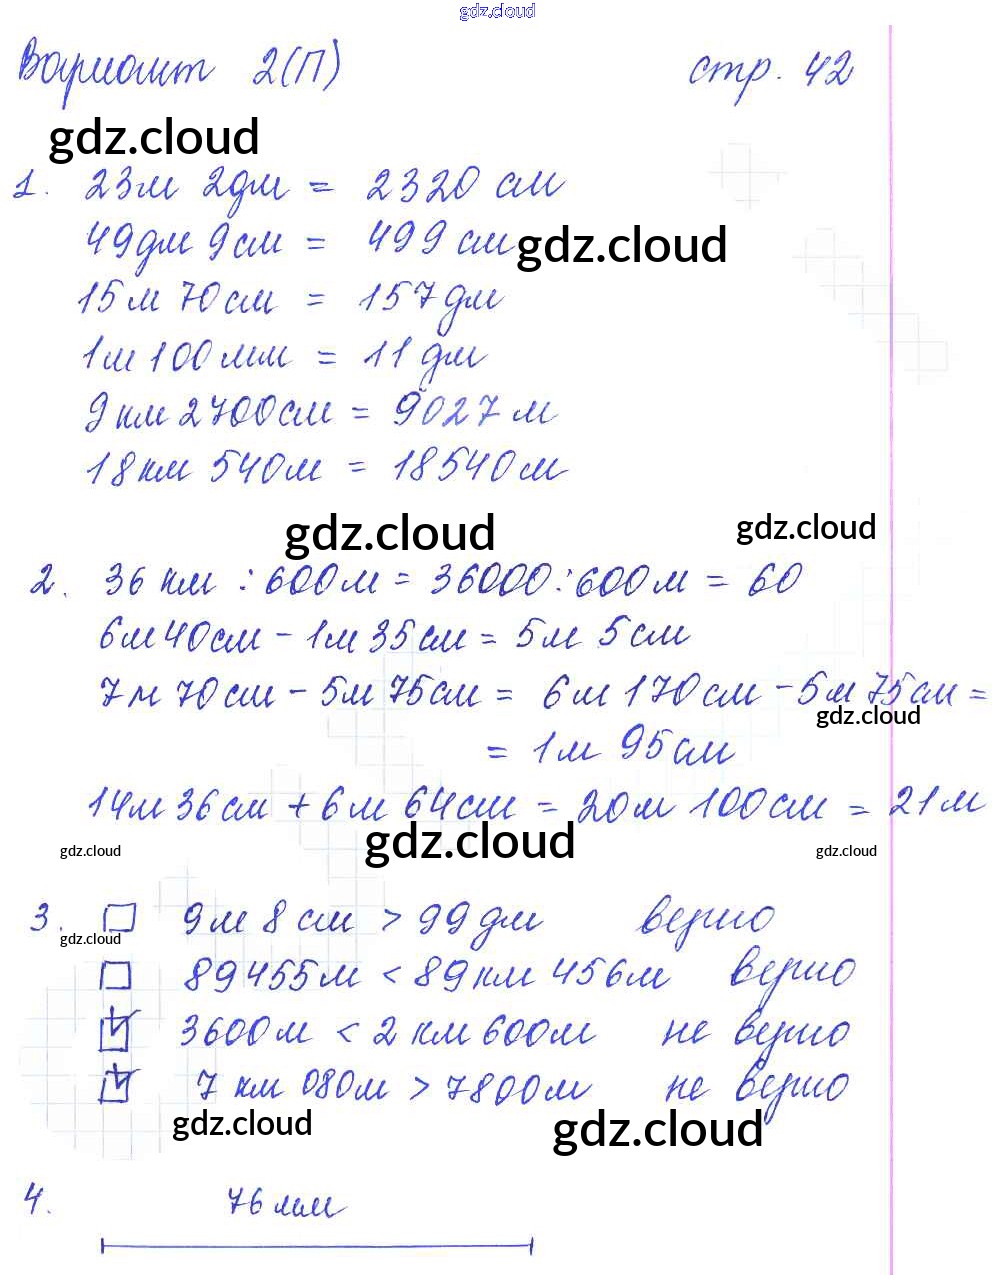 gdz.cloud
Вариант 2(П) стр. 42
gdz.cloud
1. 23м 2дм = 2320 см
49дм 9см = 499 см
gdz.cloud
15м 70см = 157дм
1м 100мм = 11 дм
9 км 2700см = 9027 м
18км 540м = 18540м
gdz.cloud gdz.cloud
2. 36 км : 600м = 36000:600м = 60
6м 40см - 1м 35см = 5м 5см
7м 70см - 5м 75см = 6м 170см - 5м 75см =
gdz.cloud
= 1м 95см
14м 36см + 6м 64см = 20м 100см = 21м
gdz.cloud gdz.cloud gdz.cloud
3. 9м 8 см > 99дм верно
gdz.cloud
89455м < 89км 456м верно
3600м < 2 км 600м не верно
7 км 080м > 7800м не верно
gdz.cloud gdz.cloud
4. 76мм